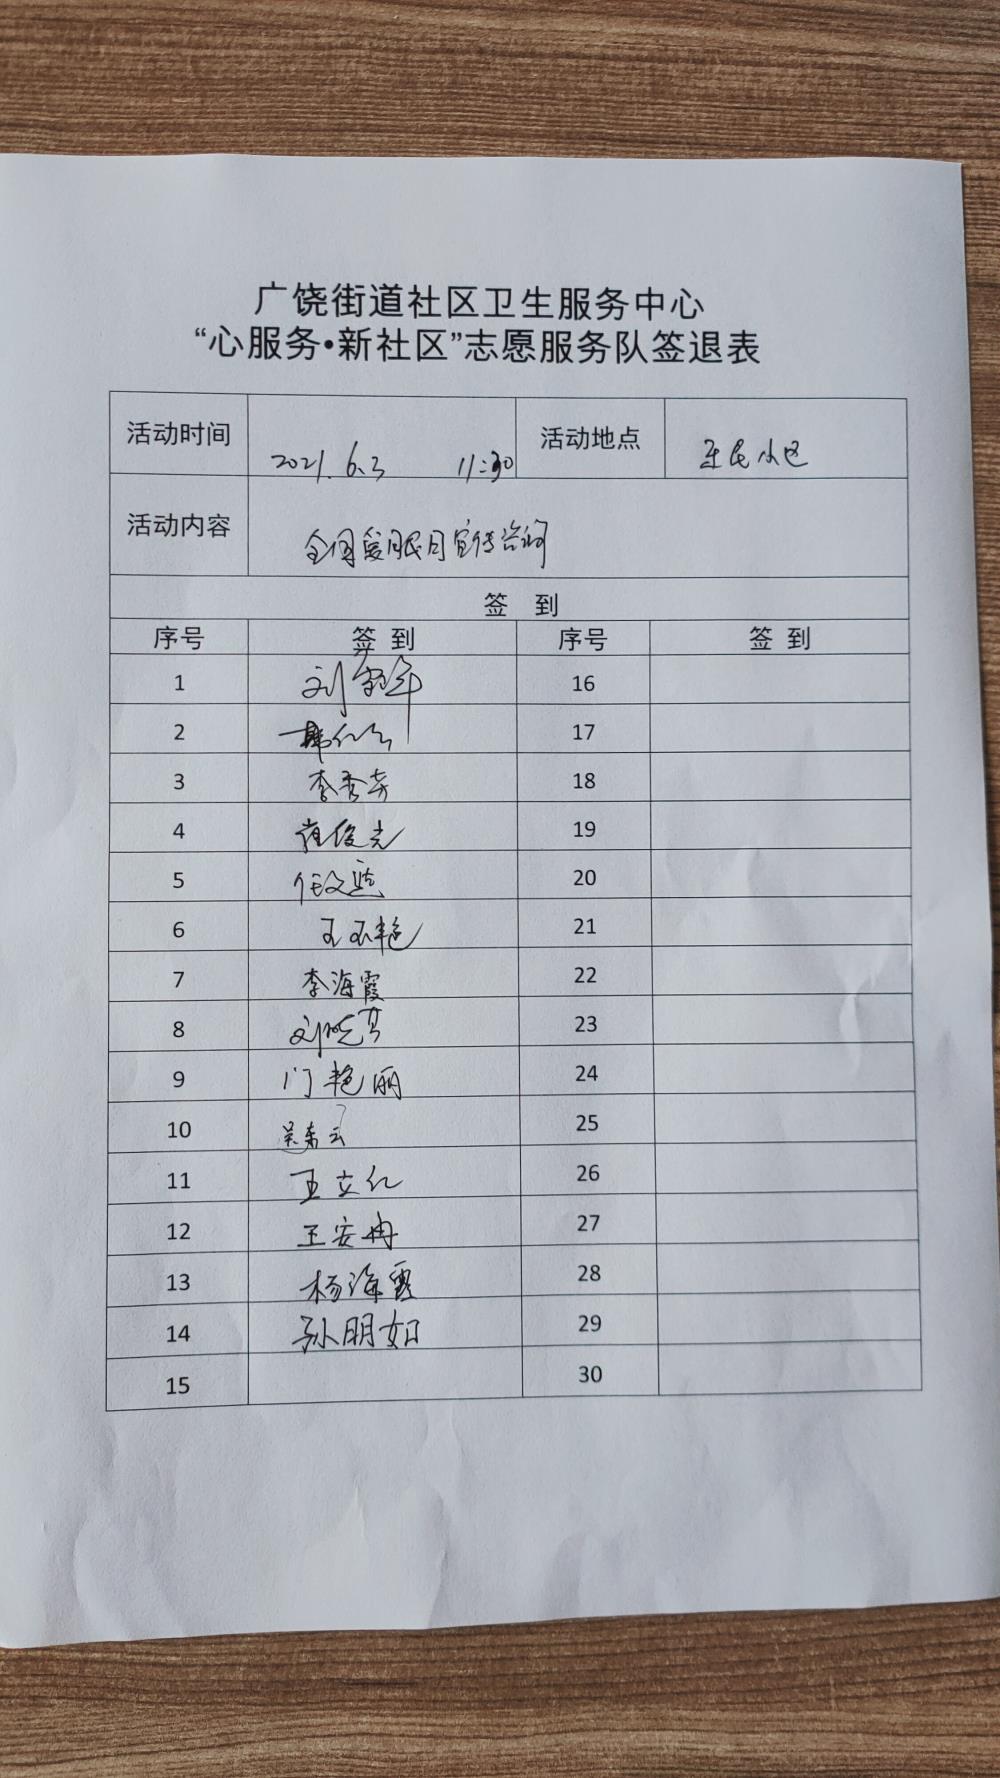 广饶街道社区卫生服务中心
“心服务•新社区”志愿服务队签退表
活动时间 2021.6.3 11:30 活动地点 乐民小区
活动内容 全国爱眼日宣传咨询
签 到
序号 签 到 序号 签 到
1 刘 16
2 韩 17
3 李秀 18
4 崔俊光 19
5 任文 20
6 王玉艳 21
7 李海霞 22
8 刘晓芳 23
9 门艳丽 24
10 吴东云 25
11 王立仁 26
12 王安冉 27
13 杨海霞 28
14 孙明如 29
15 30